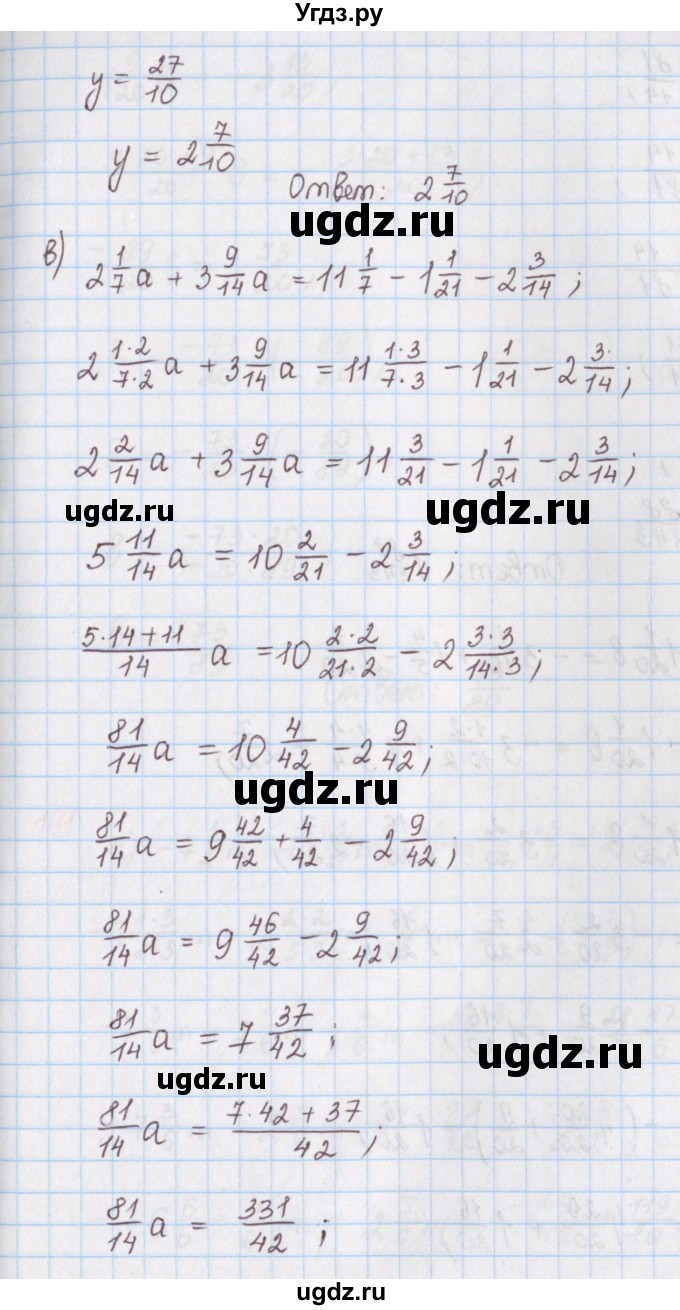 Угдз.ру
y = 27/10
y = 2 7/10
Ответ: 2 7/10
ugdz.ru
в) 2 1/7 a + 3 9/14 a = 11 1/7 − 1 1/21 − 2 3/14 ;
2 1·2/7·2 a + 3 9/14 a = 11 1·3/7·3 − 1 1/21 − 2 3·/14 ;
2 2/14 a + 3 9/14 a = 11 3/21 − 1 1/21 − 2 3/14 ;
ugdz.ru ugdz.ru
5 11/14 a = 10 2/21 − 2 3/14 ;
5·14+11/14 a = 10 2·2/21·2 − 2 3·3/14·3 ;
81/14 a = 10 4/42 − 2 9/42 ;
ugdz.ru
81/14 a = 9 42/42 + 4/42 − 2 9/42 ;
81/14 a = 9 46/42 − 2 9/42 ;
81/14 a = 7 37/42 ;
ugdz.ru ugdz.ru
81/14 a = 7·42 + 37/42 ;
81/14 a = 331/42 ;
ugdz.ru